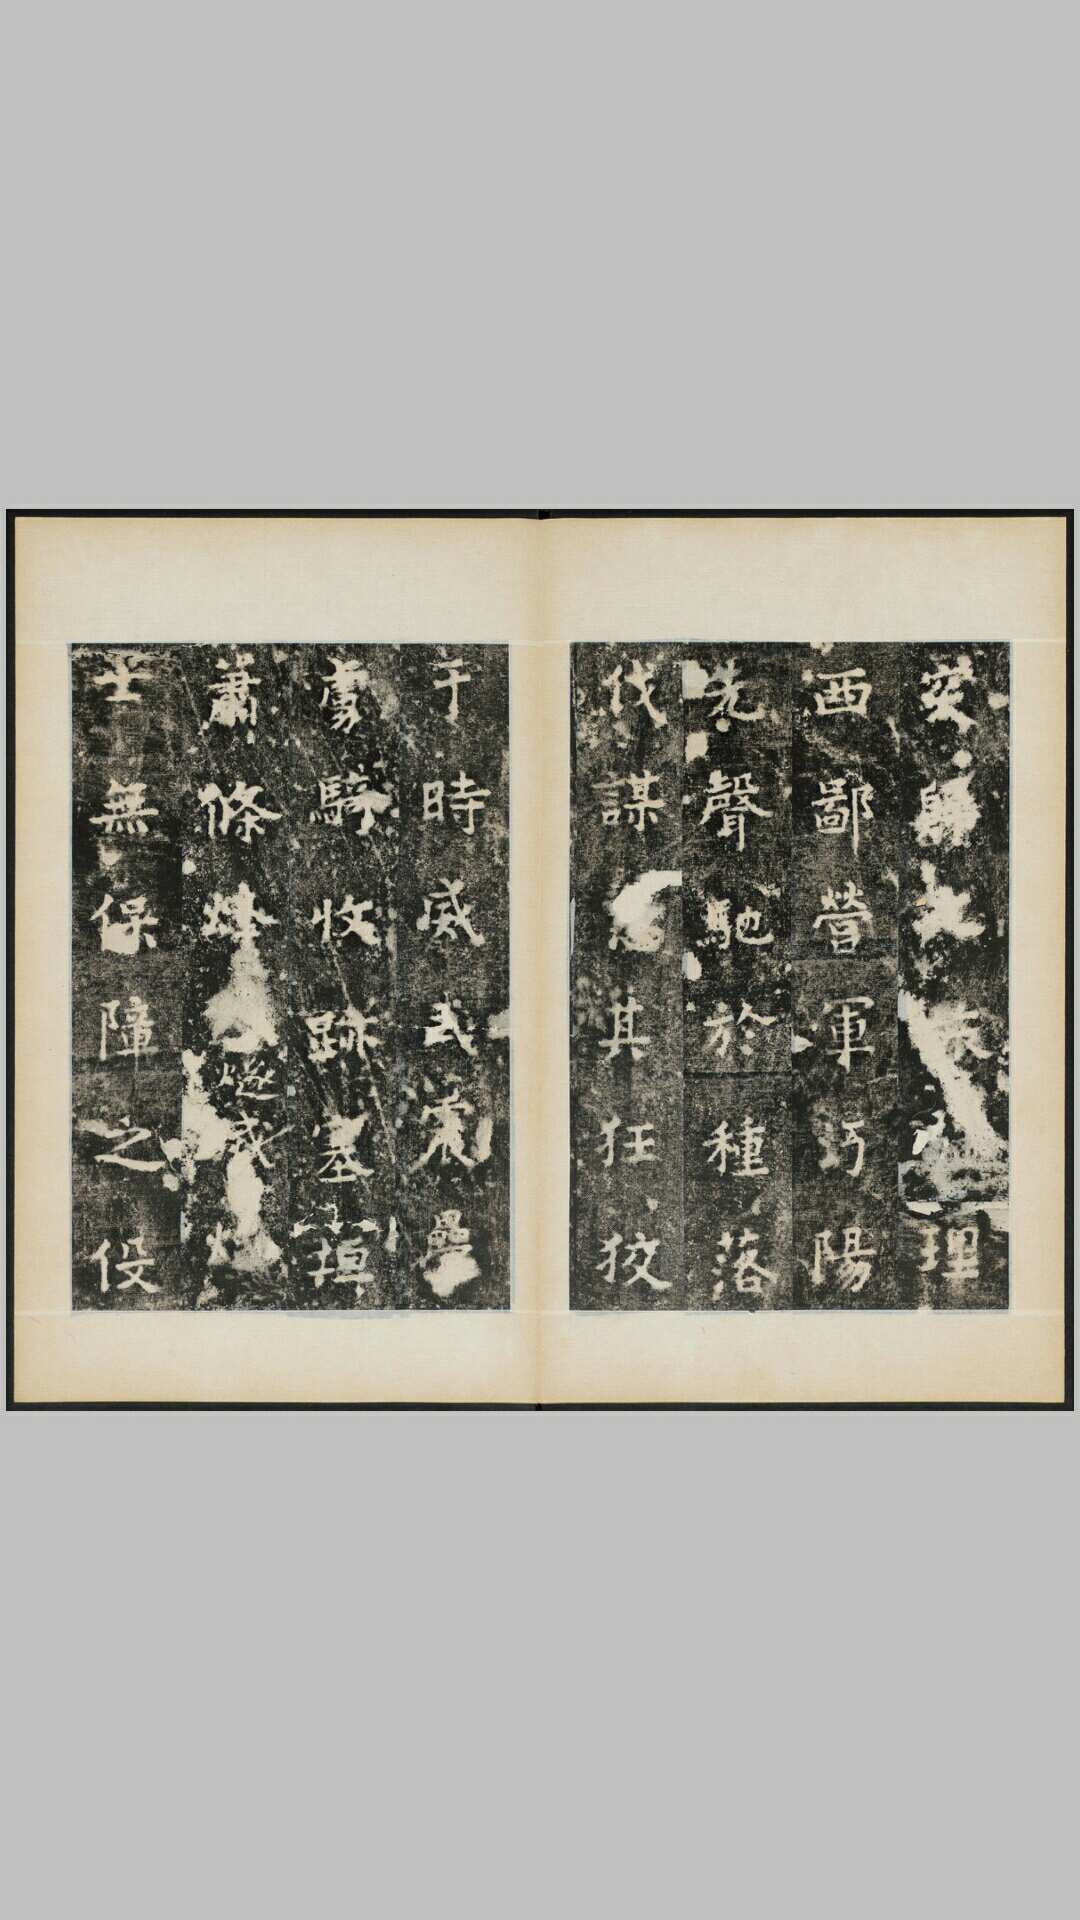 安歸大宗允理
西鄙營軍沔陽
先聲馳於種落
伐謀息其狂狡
于時威武震疊
虜騎收跡塞垣
肅條烽燧戎
士無保障之役